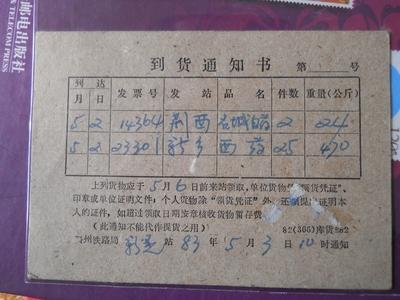 邮电出版社
N TELECOM PRESS
到货通知书 第 号
到达 发票号 发站 品名 件数 重量(公斤)
月 日
5 2 14364 西 2 224
5 2 23301 新乡 西药 25 470
上列货物应于5月6日前来站领取,单位货物凭“领货凭证”、
印章或单位证明文件;个人货物除“领货凭证”外,还须提出证明本
人的证件,如超过领取日期按章核收货物暂存费。
(此通知不能代作提货之用) 82(366)库货
州铁路局 站83年5月3日10时通知